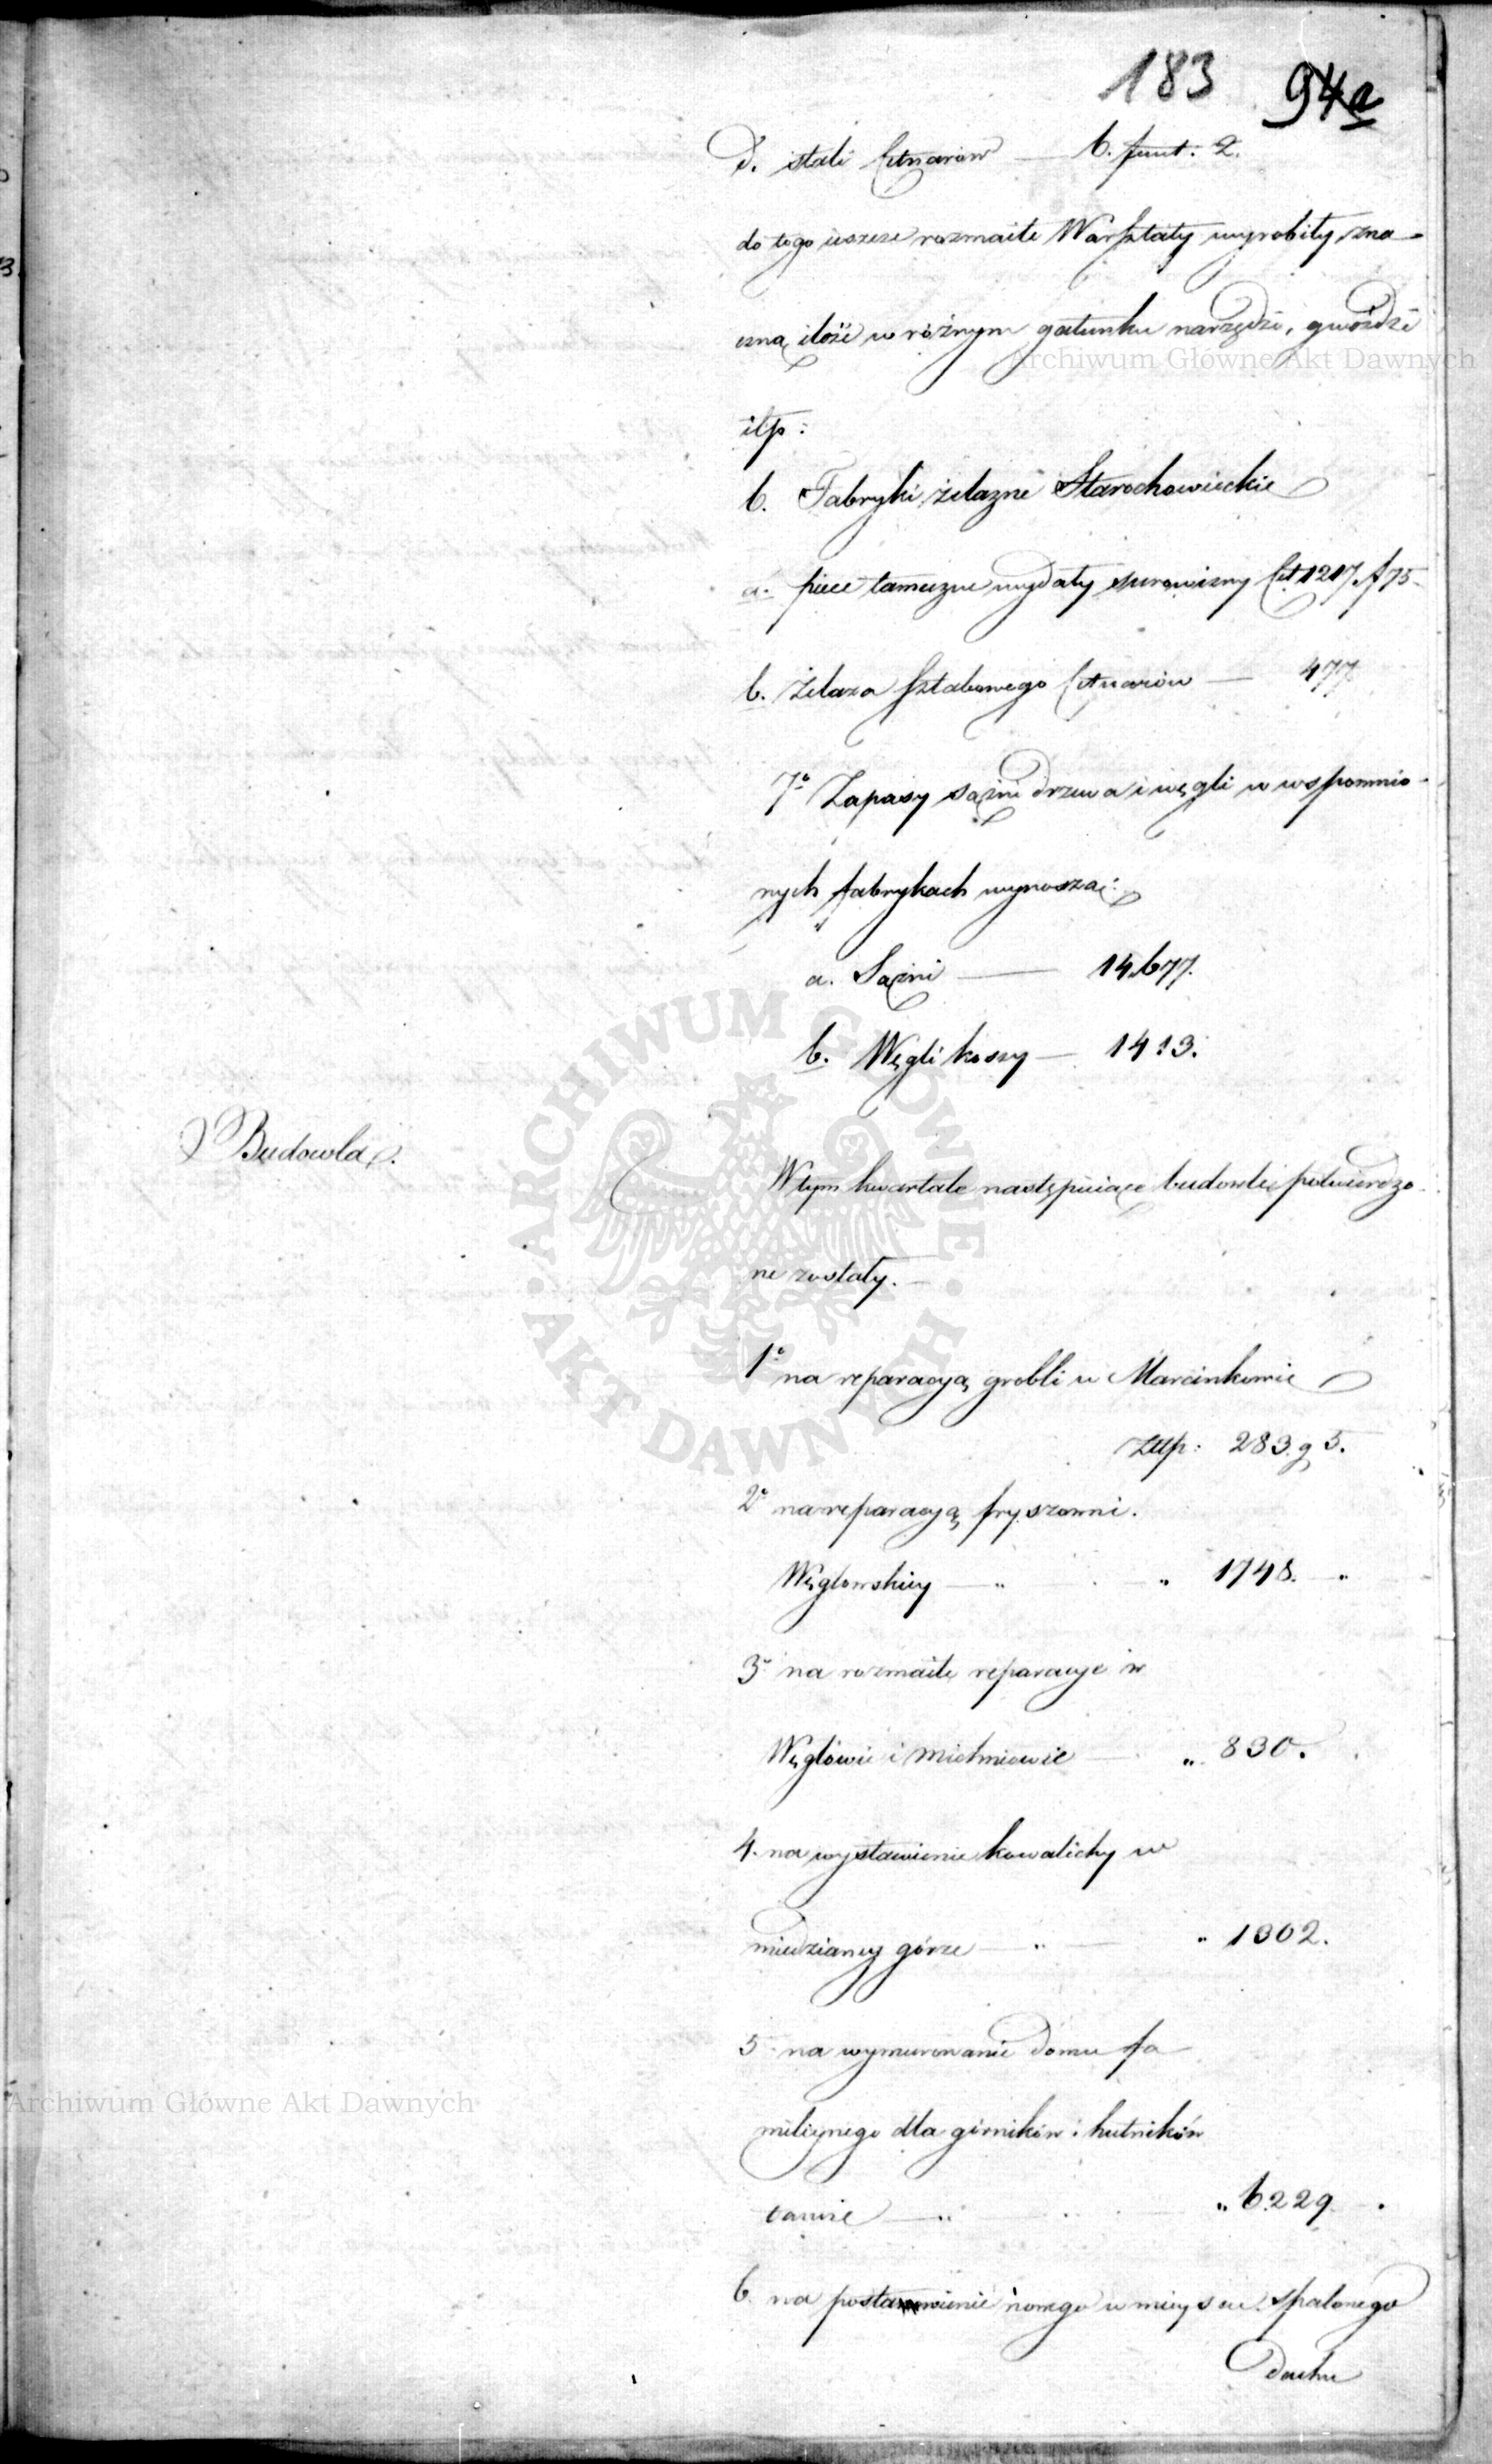 183 94a
d. stali Cetnarów — 6. funt: 2.
do tego ieszcze rozmaite Warsztaty wyrobiły zna-
czną ilość w różnym gatunku narzędzi, gwoździ
Archiwum Główne Akt Dawnych
itp:
6. Fabryki żelazne Starochowieckie
a. piece tameczne wydały surowizny Cet 1217. f 75.
b. Żelaza sztabowego Cetnarów — 477
7o Zapasy sążni drzewa i węgli w wspomnio-
nych fabrykach wynoszą:
a. Sążni — 14,677.
b. Węgli koszy — 1413.
ARCHIWUM GŁÓWNE AKT DAWNYCH
Budowla.
W tym kwartale następuiące budowle potwierdzo-
ne zostały.—
1o na reparacyą grobli w Marcinkowie
Złtp: 283. g 5.
2o na reparacyą fryszerni.
Węglowskiey — „ „ 1748. — „
3o na rozmaite reparacye w
Węglowie i Michniowie — „ 830.
4. na wystawienie kowalichy w
miedzianey górze — „ — „ 1302.
5. na wymurowanie domu fa-
miliynego dla górników i hutników
tamże — „ „ 6229.
6 na postawienie nowego w mieysce spalonego
dachu
Archiwum Główne Akt Dawnych